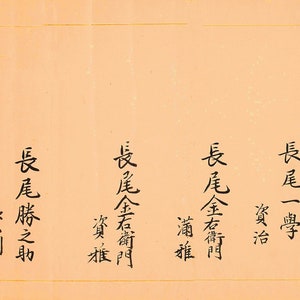 長尾一學
資治
長尾金右衛門
満雅
長尾金右衛門
資雅
長尾勝之助